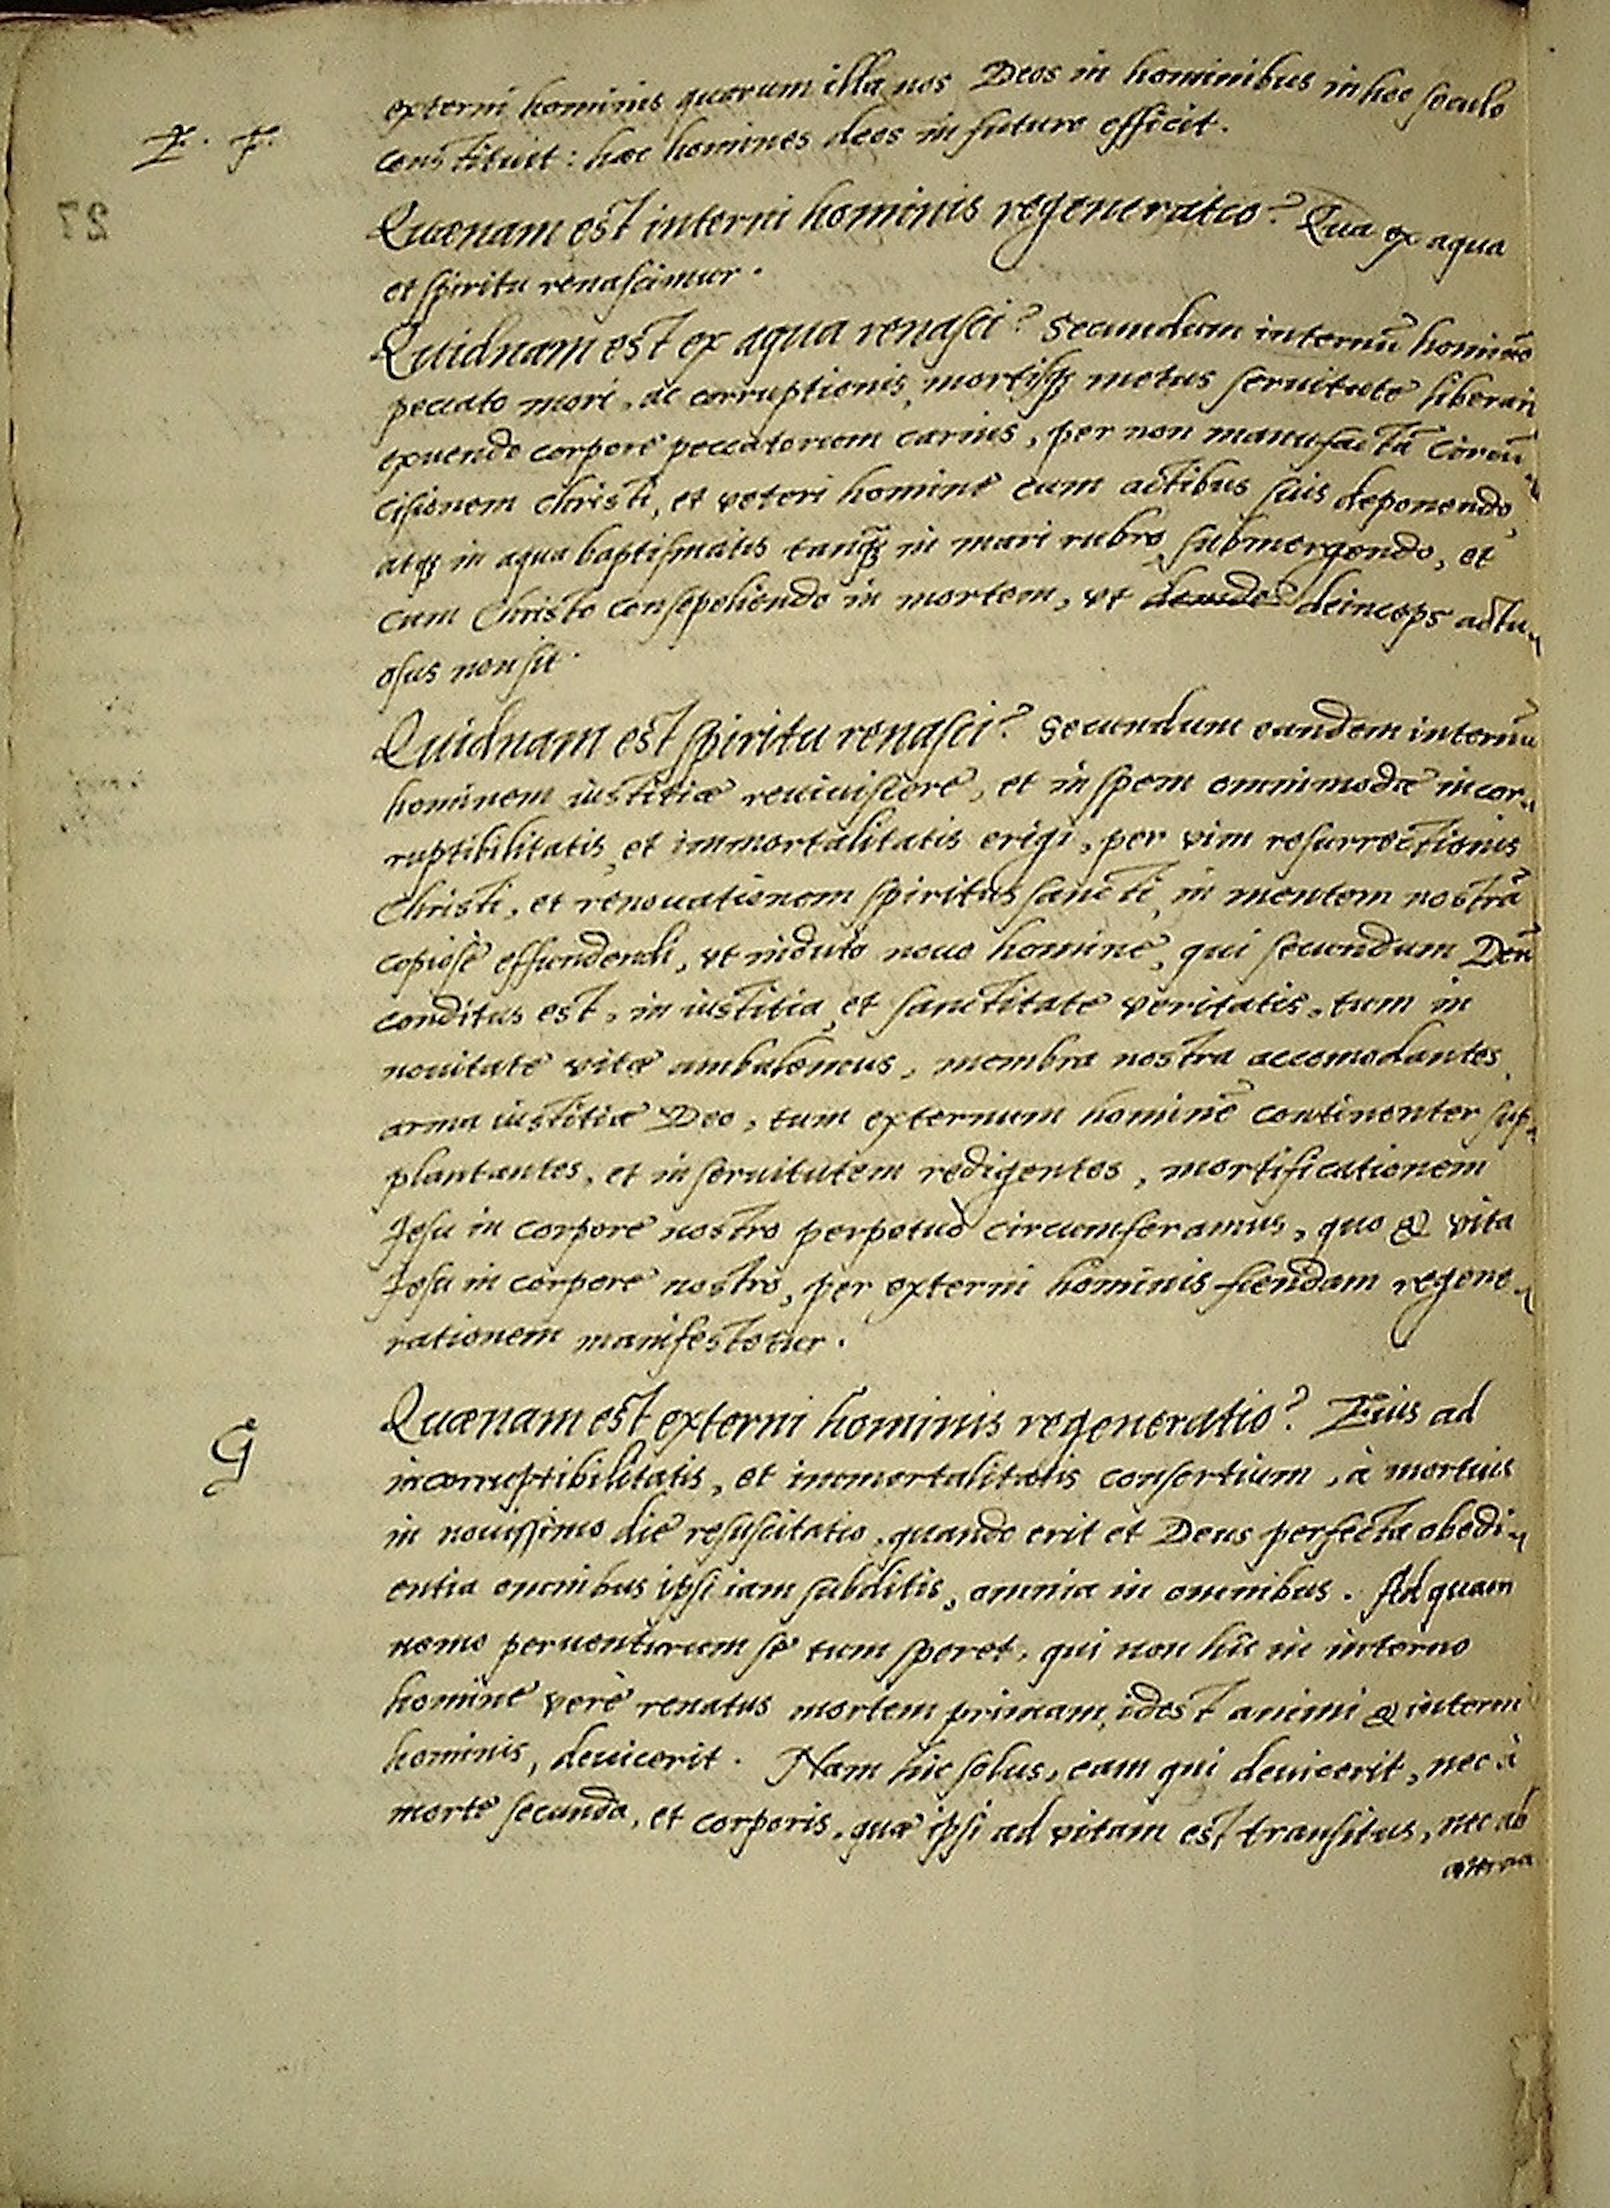 externi hominis quarum illa nos Deos in hominibus in hoc seculo
constituit: hæc homines deos in futuro efficit.
E. F.
Quænam est interni hominis regeneratio? Qua ex aqua
et spiritu renascimur.
27
Quidnam est ex aqua renasci? Secundum internũ hominẽ
peccato mori, ac corruptionis, mortisq; metus servitute liberari
exuendo corpore peccatorum carnis, per non manufactã Circũ
cisionem Christi, et veteri homine cum actibus suis deponendo,
atq; in aqua baptismatis tanq̃ in mari rubro submergendo, et
cum Christo consepeliendo in mortem, vt deinceps actu-
osus non sit.
Quidnam est spiritu renasci? Secundum eundem internũ
hominem iustitiæ reuiuiscere, et in spem omnimodæ incor-
ruptibilitatis, et immortalitatis erigi, per vim resurrectionis
Christi, et renouationem spiritus sancti, in mentem nostrã
copiosè effundendi, vt induto nouo homine, qui secundum Deũ
conditus est, in iustitia, et sanctitate veritatis, tum in
nouitate vitæ ambulemus, membra nostra accomodantes
arma iustitiæ Deo, tum externum hominẽ continenter sup-
plantantes, et in seruitutem redigentes, mortificationem
Jesu in corpore nostro perpetuò circumferamus, quo & vita
Jesu in corpore nostro, per externi hominis fiendam regene-
rationem manifestetur.
G
Quænam est externi hominis regeneratio? Eius ad
incorruptibilitatis, et immortalitatis consortium, à mortuis
in nouissimo die resuscitatio, quando erit et Deus perfecta obedi-
entia omnibus ipsi iam subditis, omnia in omnibus. Ad quam
nemo peruenturum se tum speret, qui non hîc in interno
homine verè renatus mortem primam, idest animi & interni
hominis, deuicerit. Nam hic solus, eam qui deuicerit, nec à
morte secunda, et corporis, quæ ipsi ad vitam est transitus, nec ab
æterna